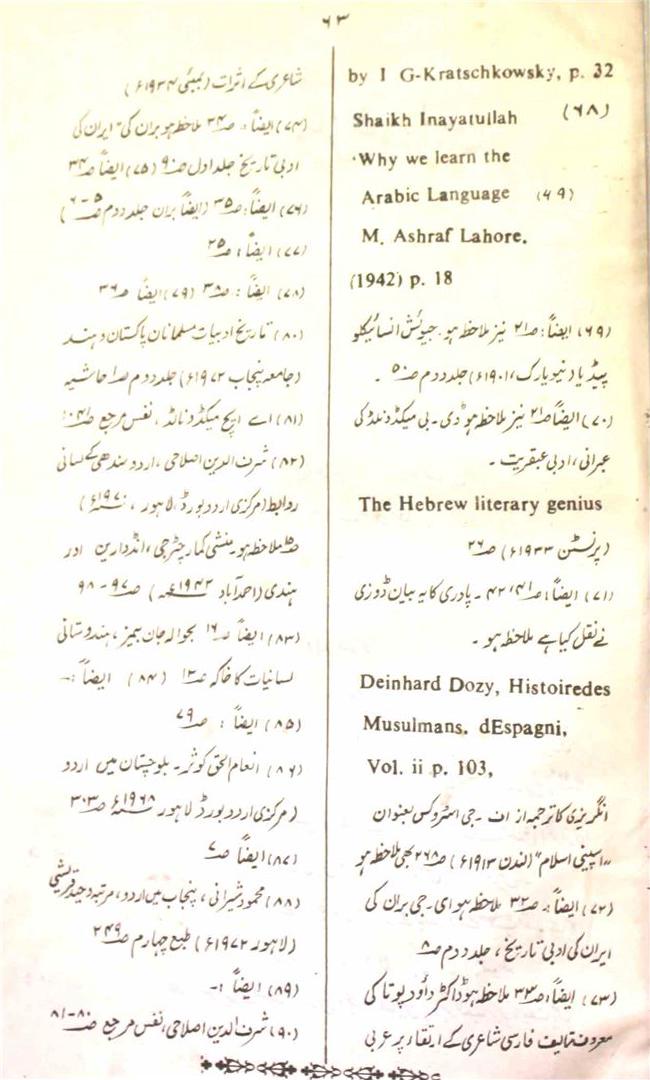 ۶۳
by I G-Kratschkowsky, p. 32
Shaikh Inayatullah (۶۸)
Why we learn the
Arabic Language (۴۹)
M. Ashraf Lahore.
(1942) p. 18
(۶۹) ایضاً: صـ۲۱ نیز ملاحظہ ہو۔ جیوئش انسائیکلو
پیڈیا (نیویارک، ۱۹۰۱ء) جلد دوم صـ۵۰ ۔
(۷۰) ایضاً صـ۲۱ نیز ملاحظہ ہو ڈی۔ بی میکڈونلڈ کی
عبرانی، ادبی عبقریت ۔
The Hebrew literary genius
(پرنسٹن ۱۹۳۳ء) صـ۲۶
(۷۱) ایضاً: صـ۴۱، ۴۲ ۔ پادری کا یہ بیان ڈوزی
نے نقل کیا ہے ملاحظہ ہو ۔
Deinhard Dozy, Histoiredes
Musulmans. dEspagni,
Vol. ii p. 103,
انگریزی کا ترجمہ از اف ۔ جی اسٹروکس بعنوان
"اسپینی اسلام" (لندن ۱۹۱۳ء) صـ۲۶۸ بھی ملاحظہ ہو
(۷۲) ایضاً: صـ۳۲ ملاحظہ ہو ای۔ جی بران کی
ایران کی ادبی تاریخ، جلد دوم صـ۸
(۷۳) ایضاً: صـ۳۳ ملاحظہ ہو ڈاکٹر داؤد پوتا کی
معروف تالیف فارسی شاعری کے ارتقاء پر عربی
شاعری کے اثرات (بمبئی ۱۹۳۴ء)
(۷۴) ایضاً: صـ۳۴ ملاحظہ ہو بران کی "ایران کی
ادبی تاریخ جلد اول صـ۹۰ (۷۵) ایضاً صـ۳۴
(۷۶) ایضاً: صـ۳۵ (ایضاً بران جلد دوم صـ۵-۶)
(۷۷) ایضاً: صـ۳۵
(۷۸) ایضاً: صـ۳۵ (۷۹) ایضاً صـ۳۶
(۸۰) تاریخ ادبیات مسلمانان پاکستان و ہند
(جامعہ پنجاب ۱۹۷۲ء) جلد دوم صـ۱ حاشیہ
(۸۱) اے ایچ میکڈونالڈ، نفس مرجع صـ۱۰۴۱
(۸۲) شرف الدین اصلاحی، اردو سندھی کے لسانی
روابط (مرکزی اردو بورڈ، لاہور، ۱۹۷۰ء)
ملاحظہ ہو۔ منشی کمار چٹرجی، انڈوآرین اور
ہندی (احمدآباد ۱۹۴۲ء) صـ۹۷-۹۸
(۸۳) ایضاً صـ۱۶ بحوالہ جان بیمز، ہندوستانی
لسانیات کا خاکہ صـ۱۲ (۸۴) ایضاً :-
(۸۵) ایضاً : صـ۷۹
(۸۶) انعام الحق کوثر۔ بلوچستان میں اردو
(مرکزی اردو بورڈ لاہور ۱۹۶۸ء صـ۳۰۳
(۸۷) ایضاً صـ۷
(۸۸) محمود شیرانی، پنجاب میں اردو، مرتبہ وحید قریشی
(لاہور ۱۹۷۲ء) طبع چہارم صـ۲۴۹
(۸۹) ایضاً :-
(۹۰) شرف الدین اصلاحی، نفس مرجع صـ۸۰-۸۱